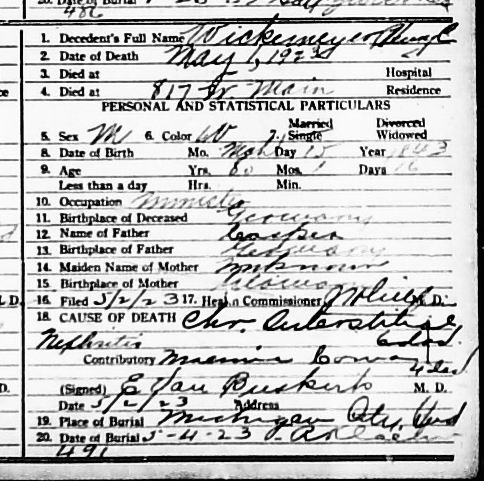 20. Date of Burial
486
1. Decedent's Full Name Wickemeyer Hugh C
2. Date of Death May 1, 1923
3. Died at Hospital
4. Died at 817 W Main Residence
PERSONAL AND STATISTICAL PARTICULARS
5. Sex M 6. Color W 7. Married Single Divorced Widowed
8. Date of Birth Mo. Mch Day 15 Year 1843
9. Age Yrs. 80 Mos. 1 Days 16
Less than a day Hrs. Min.
10. Occupation Minister
11. Birthplace of Deceased Germany
12. Name of Father Casper
13. Birthplace of Father Germany
14. Maiden Name of Mother Unknown
15. Birthplace of Mother Germany
16. Filed 5/2/23 17. Health Commissioner M. D.
18. CAUSE OF DEATH Chr. Interstitial
Nephritis
Contributory Uraemia Coma
(Signed) E Van Buskirk M. D.
Date 5/2/23 Address
19. Place of Burial Michigan City, Ind
20. Date of Burial 5-4-23
491